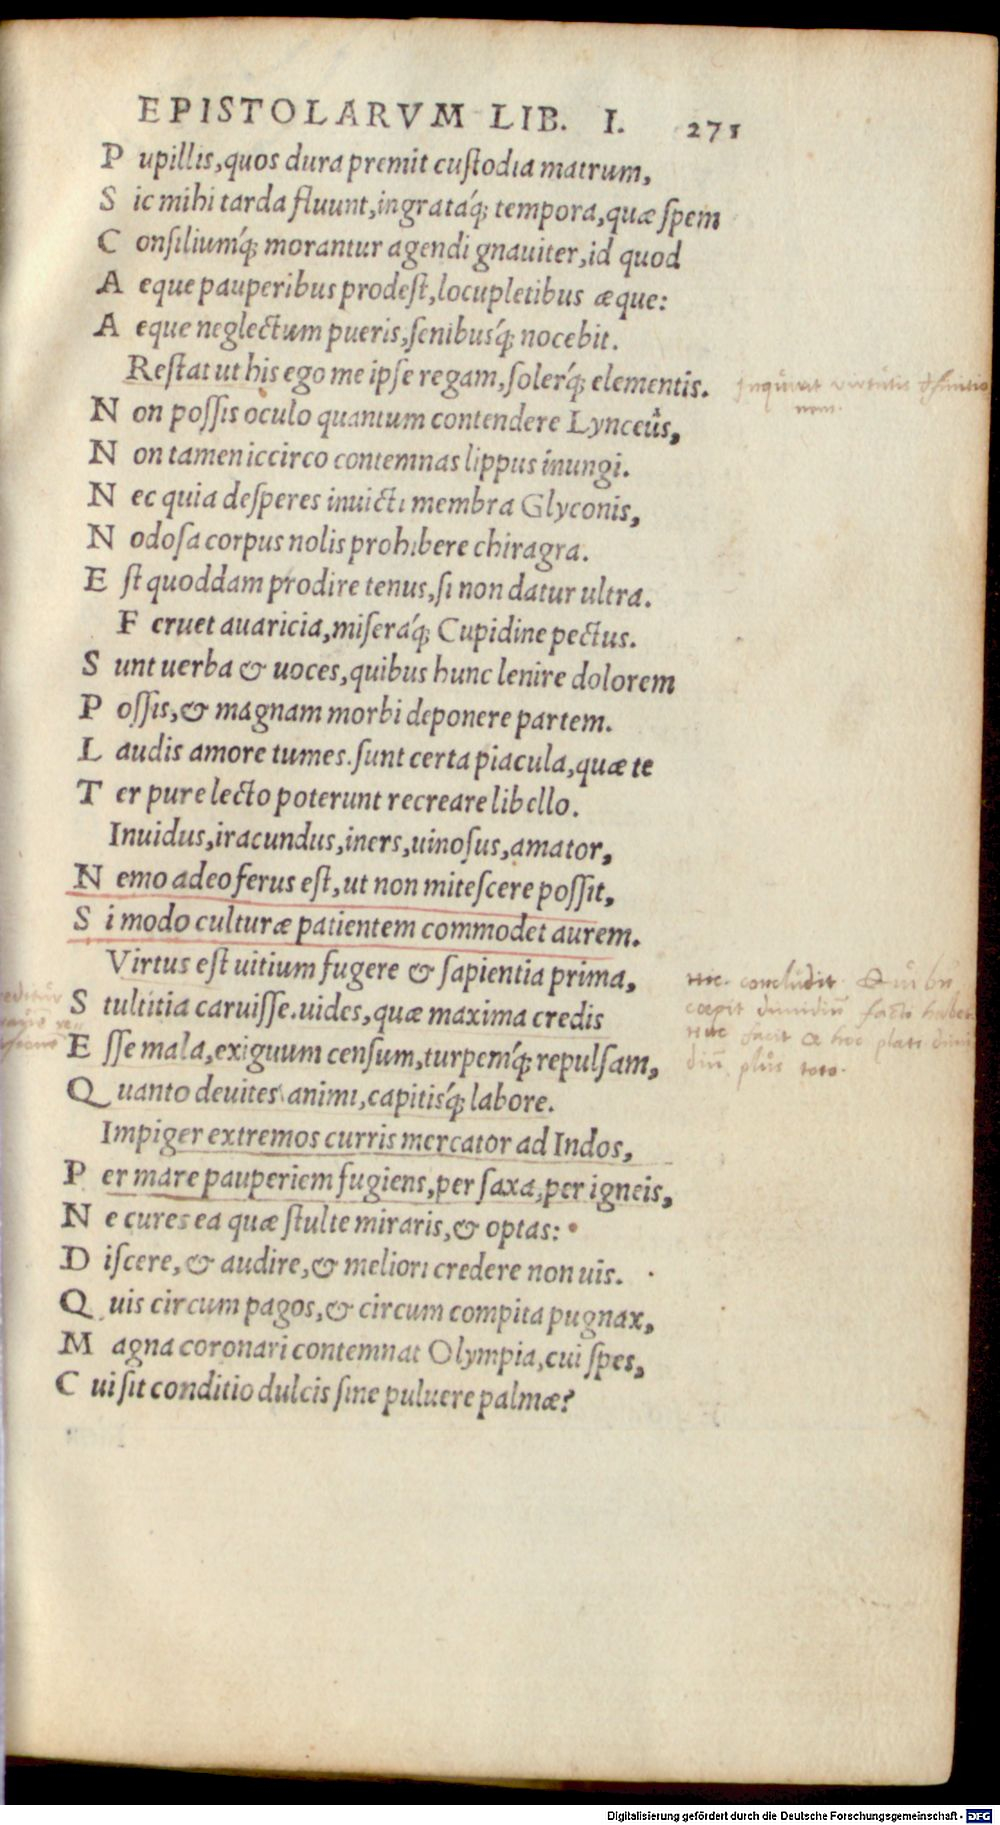 EPISTOLARVM LIB. I. 271
P upillis, quos dura premit custodia matrum,
S ic mihi tarda fluunt, ingratáq; tempora, quæ spem
C onsiliumq́; morantur agendi gnauiter, id quod
A eque pauperibus prodest, locupletibus æque:
A eque neglectum pueris, senibusq́; nocebit.
Restat ut his ego me ipse regam, solerq́; elementis.
Inquirit virtutis
N on possis oculo quantum contendere Lynceûs,
N on tamen iccirco contemnas lippus inungi.
N ec quia desperes inuicti membra Glyconis,
N odosa corpus nolis prohibere chiragra.
E st quoddam prodire tenus, si non datur ultra.
F eruet auaricia, miseráq; Cupidine pectus.
S unt uerba & uoces, quibus hunc lenire dolorem
P ossis, & magnam morbi deponere partem.
L audis amore tumes. sunt certa piacula, quæ te
T er pure lecto poterunt recreare libello.
Inuidus, iracundus, iners, uinosus, amator,
N emo adeo ferus est, ut non mitescere possit,
S i modo culturæ patientem commodet aurem.
Virtus est uitium fugere & sapientia prima,
S tultitia caruisse. uides, quæ maxima credis
E sse mala, exiguum censum, turpemq́; repulsam,
Q uanto deuites animi, capitisq́; labore.
Hic concludit
cœpit dimidiũ facti
facit hoc
plus toto.
Impiger extremos curris mercator ad Indos,
P er mare pauperiem fugiens, per saxa, per igneis,
N e cures ea quæ stulte miraris, & optas:
D iscere, & audire, & meliori credere non uis.
Q uis circum pagos, & circum compita pugnax,
M agna coronari contemnat Olympia, cui spes,
C ui sit conditio dulcis sine puluere palmæ?
Digitalisierung gefördert durch die Deutsche Forschungsgemeinschaft - DFG